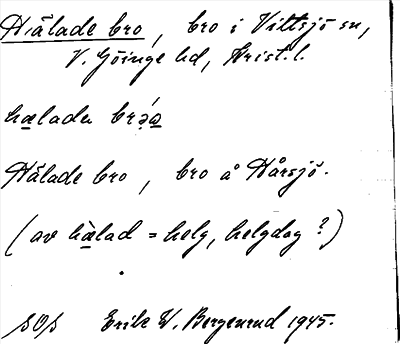 Hälade bro, bro i Vittsjö sn,
V. Göinge hd, Krist. l.
hæladə brǝá
Hälade bro, bro å Hårsjö.
(av hæ̀lad = helg, helgdag?)
SOS Erik W. Bergenrud 1945.